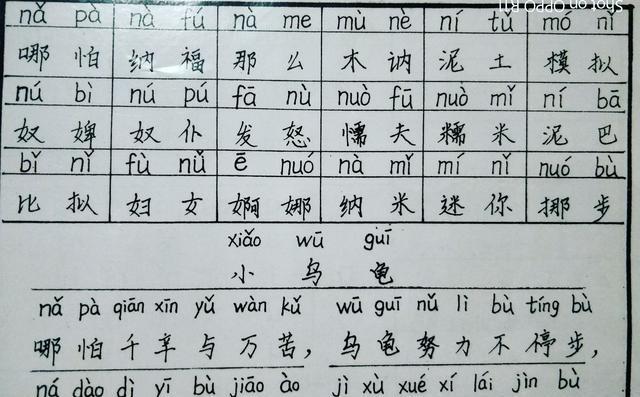 nǎ pà nà fú nà me mù nè ní tǔ mó nǐ
哪怕 纳福 那么 木讷 泥土 模拟
nú bì nú pú fā nù nuò fū nuò mǐ ní bā
奴婢 奴仆 发怒 懦夫 糯米 泥巴
bǐ nǐ fù nǚ ē nuó nà mǐ mí nǐ nuó bù
比拟 妇女 婀娜 纳米 迷你 挪步
xiǎo wū guī
小乌龟
nǎ pà qiān xīn yǔ wàn kǔ wū guī nǔ lì bù tíng bù
哪怕千辛与万苦，乌龟努力不停步，
ná dào dì yī bù jiāo ào jì xù xué xí lái jìn bù